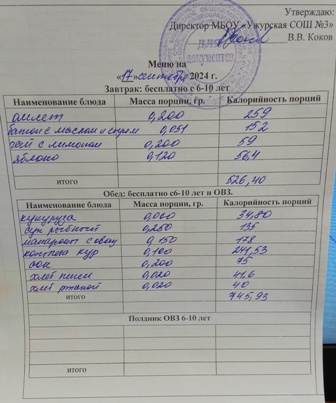 Утверждаю:
Директор МБОУ «Ужурская СОШ №3»
В.В. Коков
для документов
Меню на
«17» сентября 2024 г.
Завтрак: бесплатно с 6-10 лет
Наименование блюда Масса порции, гр. Калорийность порций
омлет 0,200 259
батон с маслом и сыром 0,051 152
чай с лимоном 0,200 59
яблоко 0,120 56,4
итого 526,40
Обед: бесплатно с6-10 лет и ОВЗ.
Наименование блюда Масса порции, гр. Калорийность порций
кукуруза 0,060 34,80
суп рыбный 0,250 135
макароны с овощ 0,150 178
котлета кур 0,100 241,53
сок 0,200 75
хлеб пшен 0,020 41,6
хлеб ржаной 0,020 40
итого 745,93
Полдник ОВЗ 6-10 лет
итого